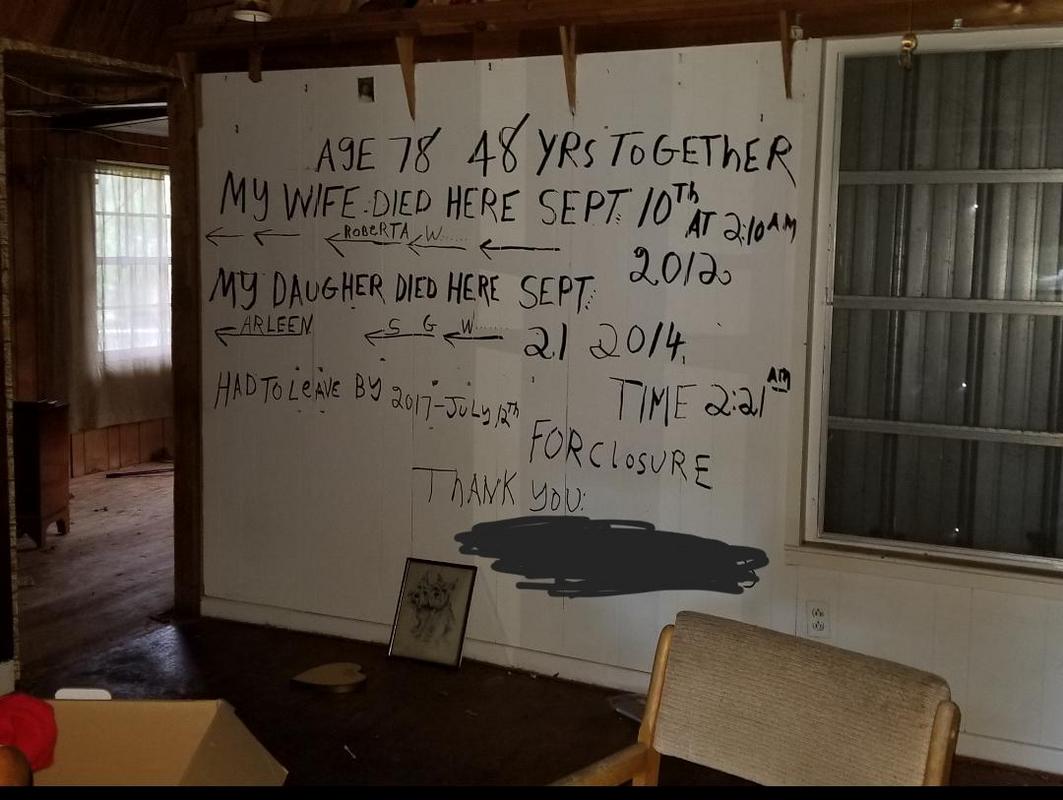 AGE 78 48 YRS TOGETHER
MY WIFE DIED HERE SEPT. 10Th AT 2:10 AM
ROBERTA W......
2012
MY DAUGHER DIED HERE SEPT.
ARLEEN S G W.......
21 2014.
HAD TO LEAVE BY 2017-JULY 12Th
TIME 2:21 AM
FORCLOSURE
THANK YOU: